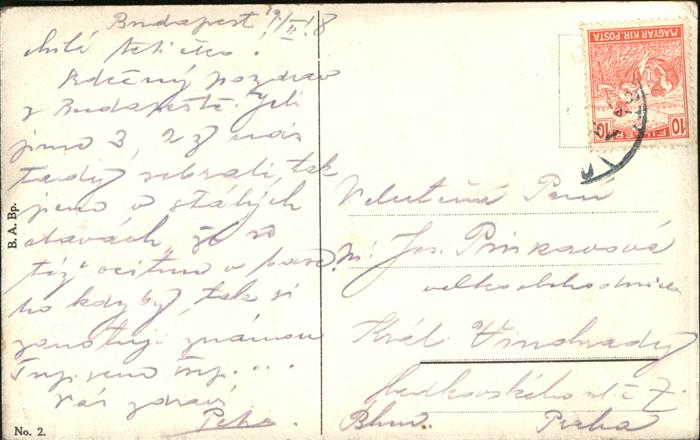 Budapest 19/II 18
milá tetičko!
Srdečný pozdrav
z Budapešti. Jeli
jsme 3, 2 z nás
tady sebrali, tak
jsme v stálých
obavách, že se
též ocitnu v base.
to kdyby, tak si
zanotuji známou
Trp. ...
Vás zdraví
B. A. Bp.
No. 2.
MAGYAR KIR. POSTA
10 FILLÉR 10
Velectěná Paní
Jos. Pinkasová
velkoobchodnice
Král Vinohrady
Praha